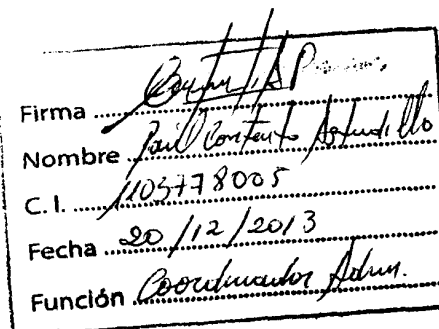 Firma
Nombre Paúl Contento Astudillo
C. I. 1103778005
Fecha 20/12/2013
Función Coordinador Admn.